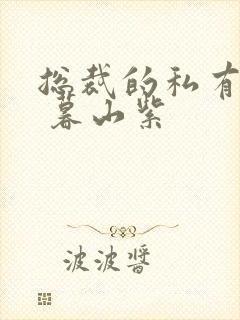 总裁的私有
暮山紫
波波酱